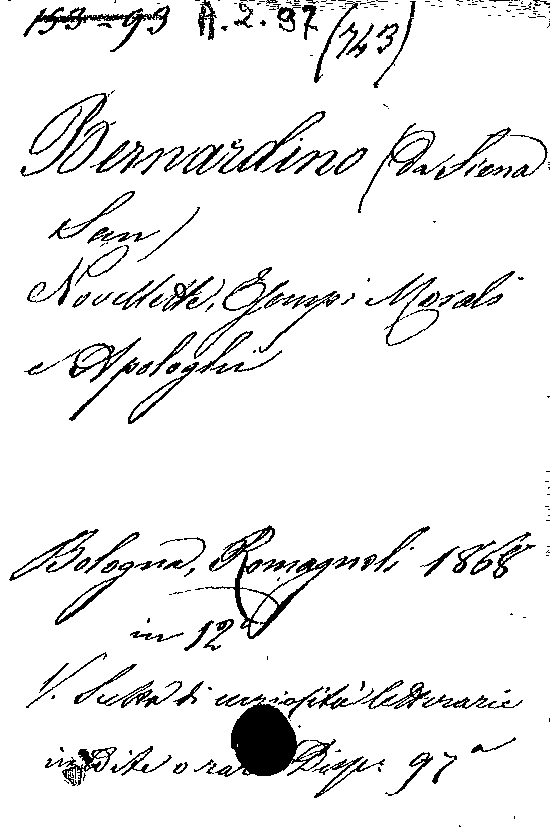 A. 2. 97 (743)
Bernardino (da Siena
San)
Novellette, Esempi Morali
e Apologhi
Bologna, Romagnoli 1868
in 12°
V. Scelta di curiosità letterarie
inedite o rare Disp: 97ª